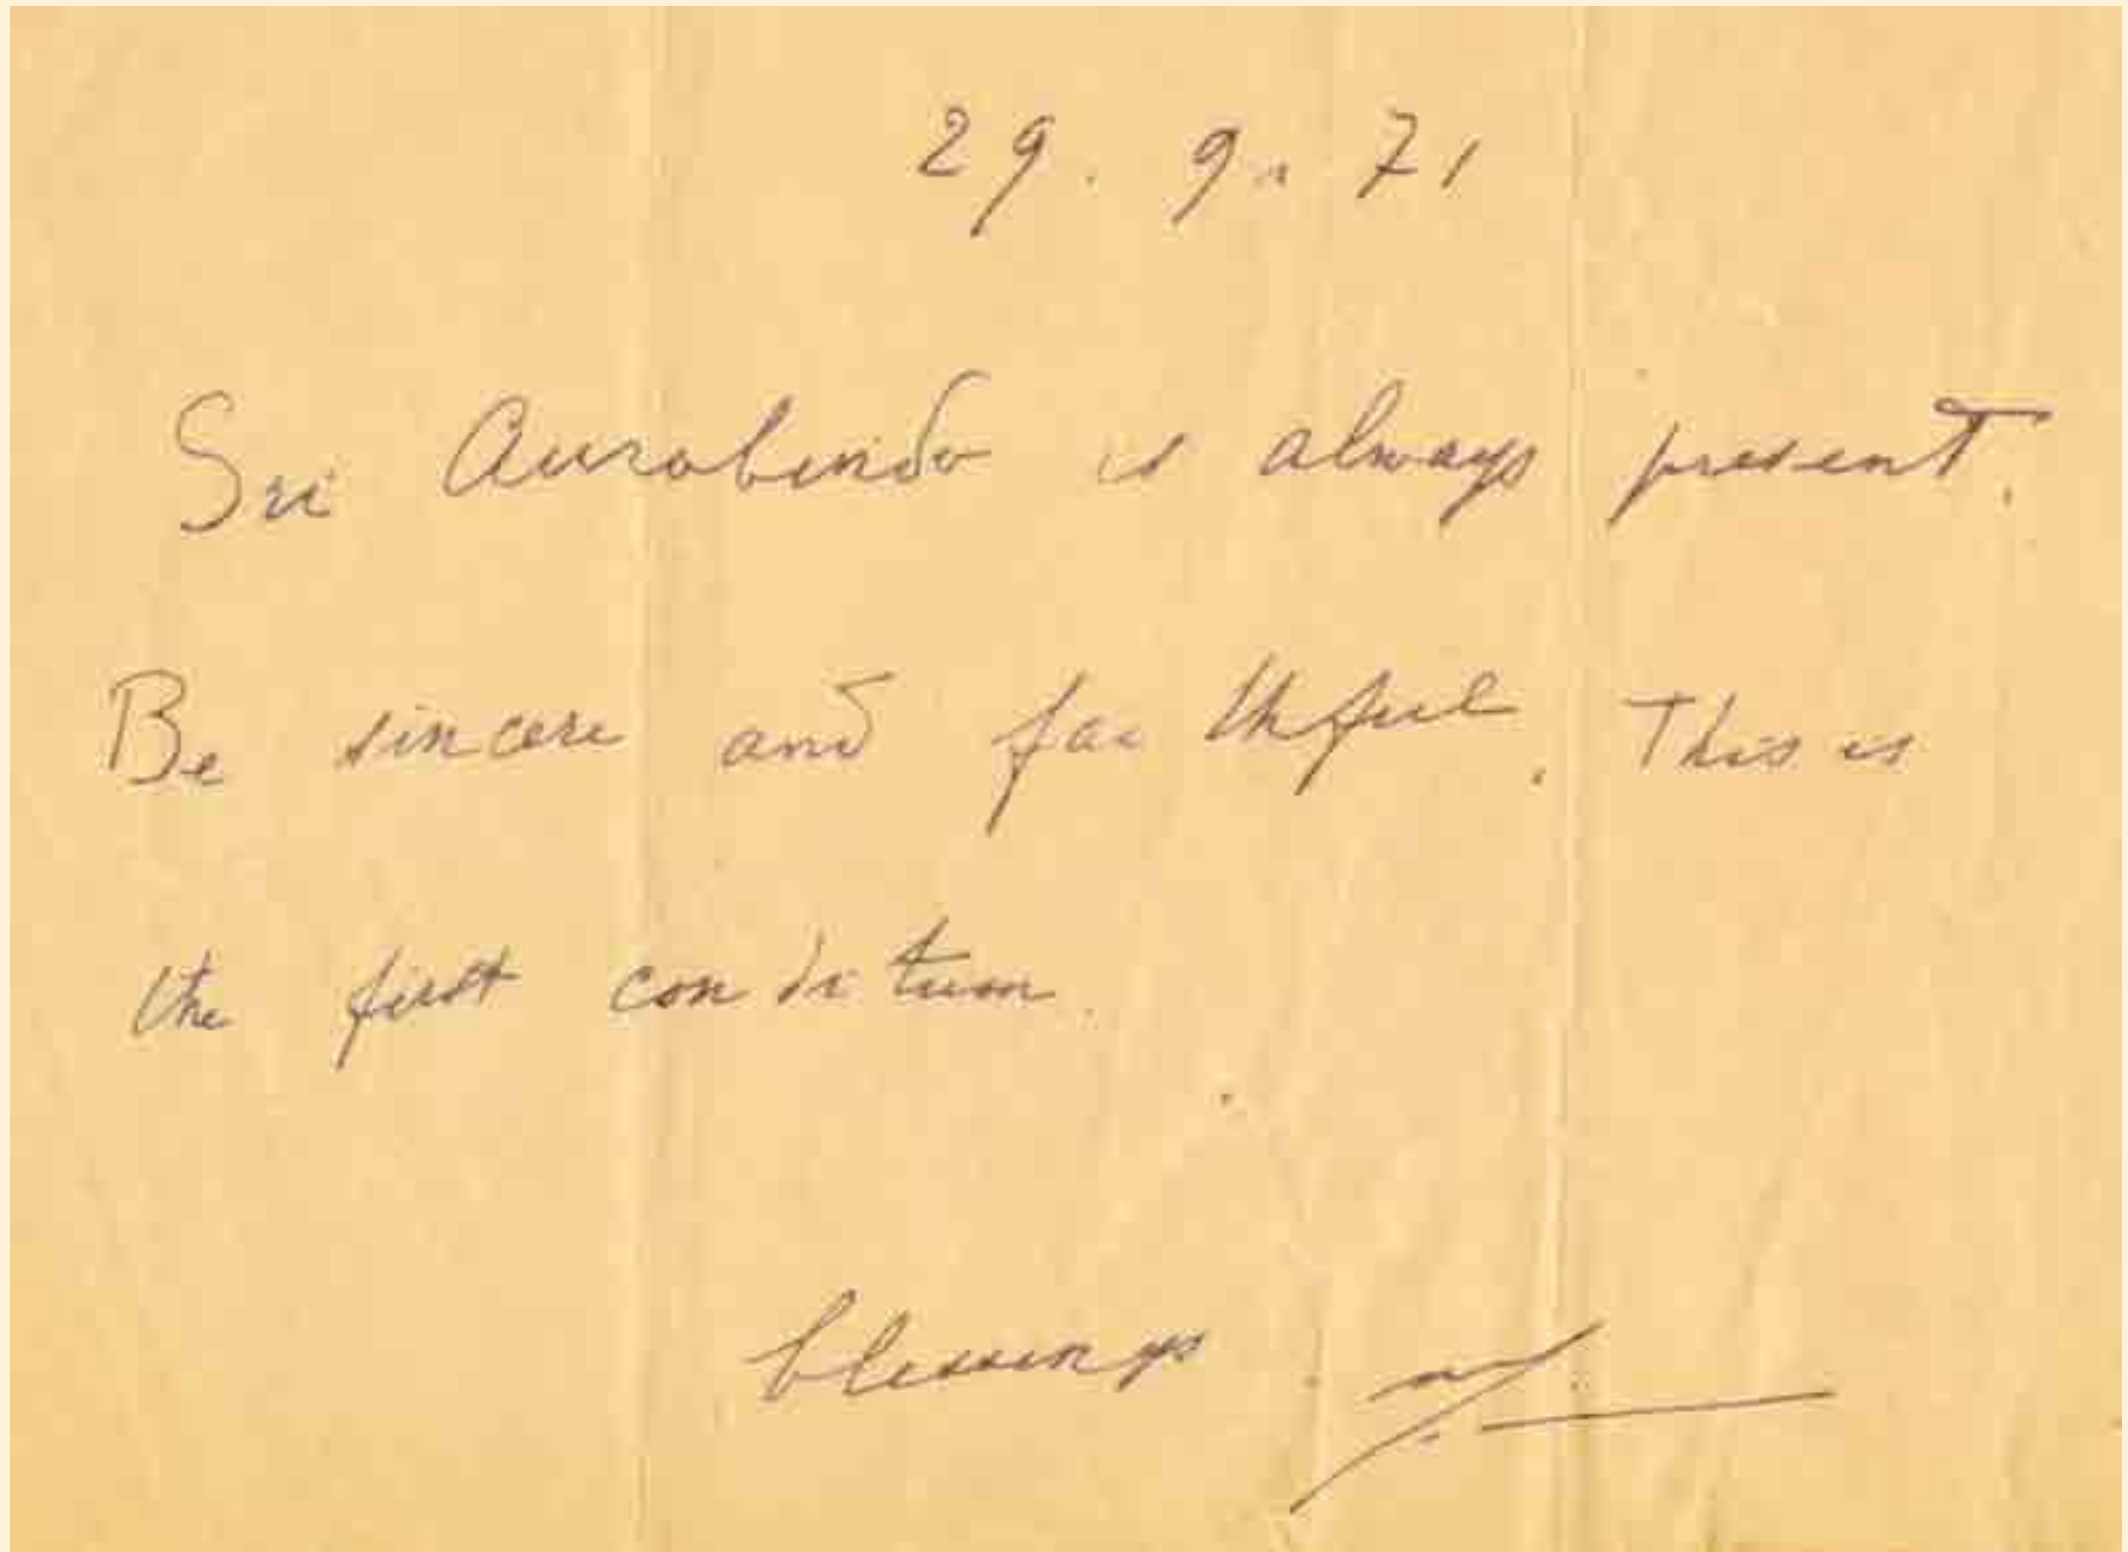 29. 9. 71
Sri Aurobindo is always present.
Be sincere and faithful. This is
the first condition.
blessings